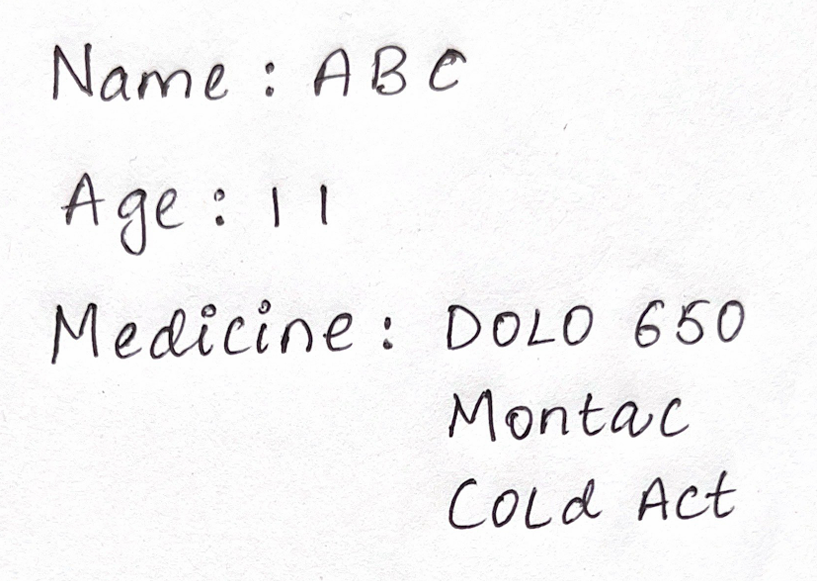 Name : ABC
Age : 11
Medicine : DOLO 650
Montac
Cold Act